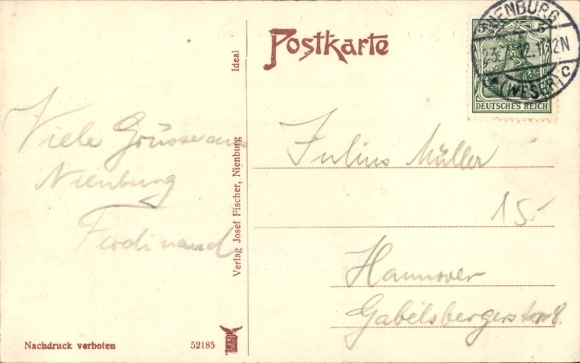 Postkarte
NIENBURG
23.7.12.11-12N
* (WESER) c
DEUTSCHES REICH
Viele Grüsse aus
Nienburg
Ferdinand
Julius Müller
15-
Hannover
Gabelsbergerstr 8.
Ideal
Verlag Josef Fischer, Nienburg
Nachdruck verboten
52185